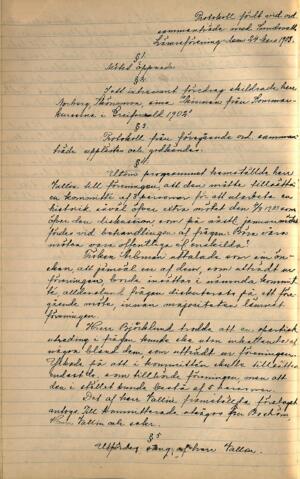 Protokoll fördt vid vid
sammanträde med Svenska
Lärareförening den 24 Mars 1903.
§ 1.
Mötet öppnade
§ 2.
I ett intressant föredrag skildrade herr
sina minnen från Sommar-
kurserna i Greifswald 1902.
§ 3.
Protokoll från föregående vid samman-
träde upplästes och godkändes.
§ 4.
Utom programmet framställde herr
Vallin till föreningen, att den måtte tillsätta
en kommitté af 3 personer för att utarbeta en
historik såväl öfver extra mötet den 1903 som
öfver den diskussion som på vårdt
fördes vid behandlingen af frågan: Böra våra
möten vara offentliga el. enskilda?
Fröken uttalade som sin ön-
skan, att jämväl en af dem, som utträdt ur
föreningen borde insättas i nämnda kommit-
té, alldenstund frågan diskuterats på ett före-
gående möte, innan majoriteten lämnat
föreningen.
Herr Björklund trodde att en opartisk
utredning i frågan kunde ske utan
några bland dem, som utträdt ur föreningen.
Yrkade på att i kommittén skulle tillsättas
endast de, som tillhörde föreningen, men att
den i stället kunde bestå af 5 personer.
Det af herr Vallin framställda förslaget
antogs. Till kommitterade utsågos frk Boström,
Herr Vallin och
§ 5
Utfördes sång af herr Vallin.